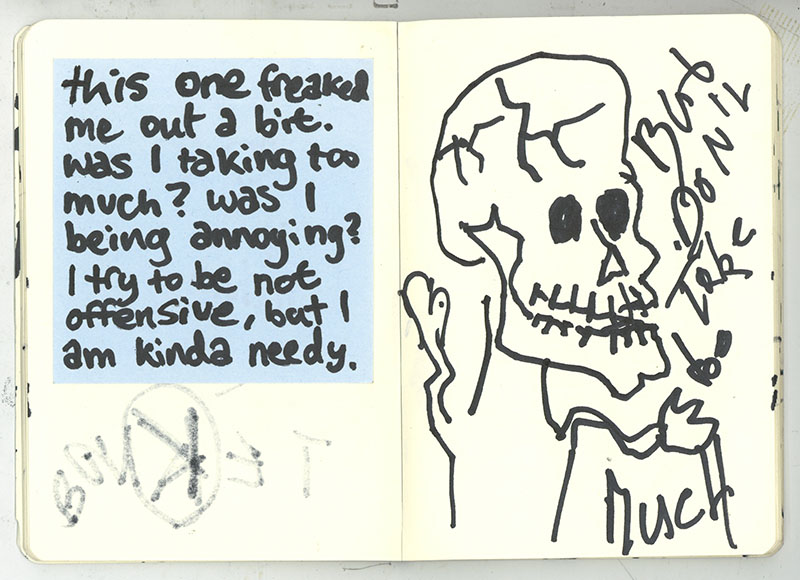 this one freaked
me out a bit.
was I taking too
much? was I
being annoying?
I try to be not
offensive, but I
am kinda needy.
BUT
DON'T
TAKE
SO
MUCH